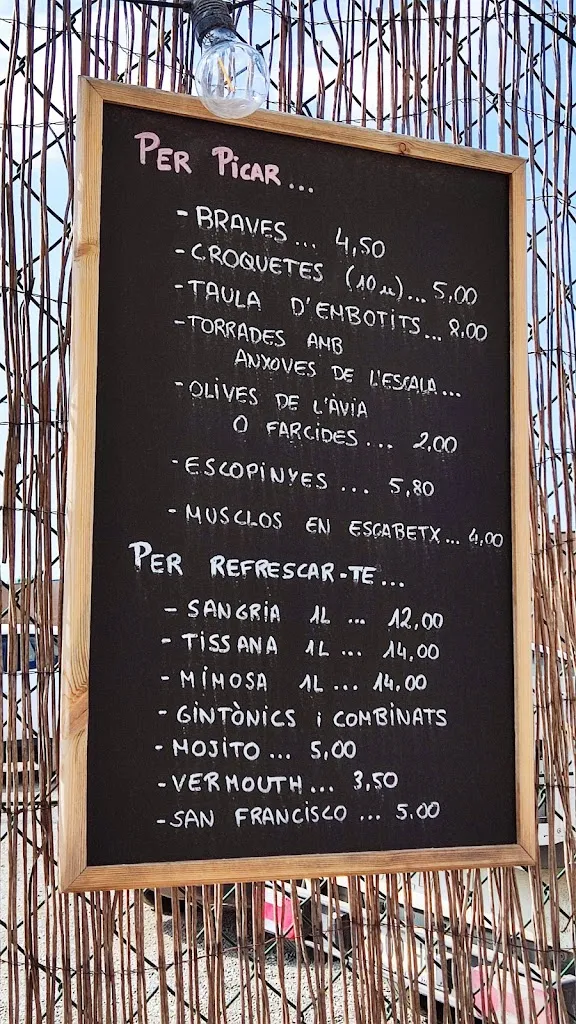 PER PICAR...
- BRAVES... 4,50
- CROQUETES (10 u)... 5,00
- TAULA D'EMBOTITS... 8,00
- TORRADES AMB
ANXOVES DE L'ESCALA...
- OLIVES DE L'ÀVIA
O FARCIDES... 2,00
- ESCOPINYES ... 5,80
- MUSCLOS EN ESCABETX... 4,00
PER REFRESCAR-TE...
- SANGRIA 1L ... 12,00
- TISSANA 1L ... 14,00
- MIMOSA 1L ... 14,00
- GINTÒNICS i COMBINATS
- MOJITO ... 5,00
- VERMOUTH ... 3,50
- SAN FRANCISCO ... 5.00